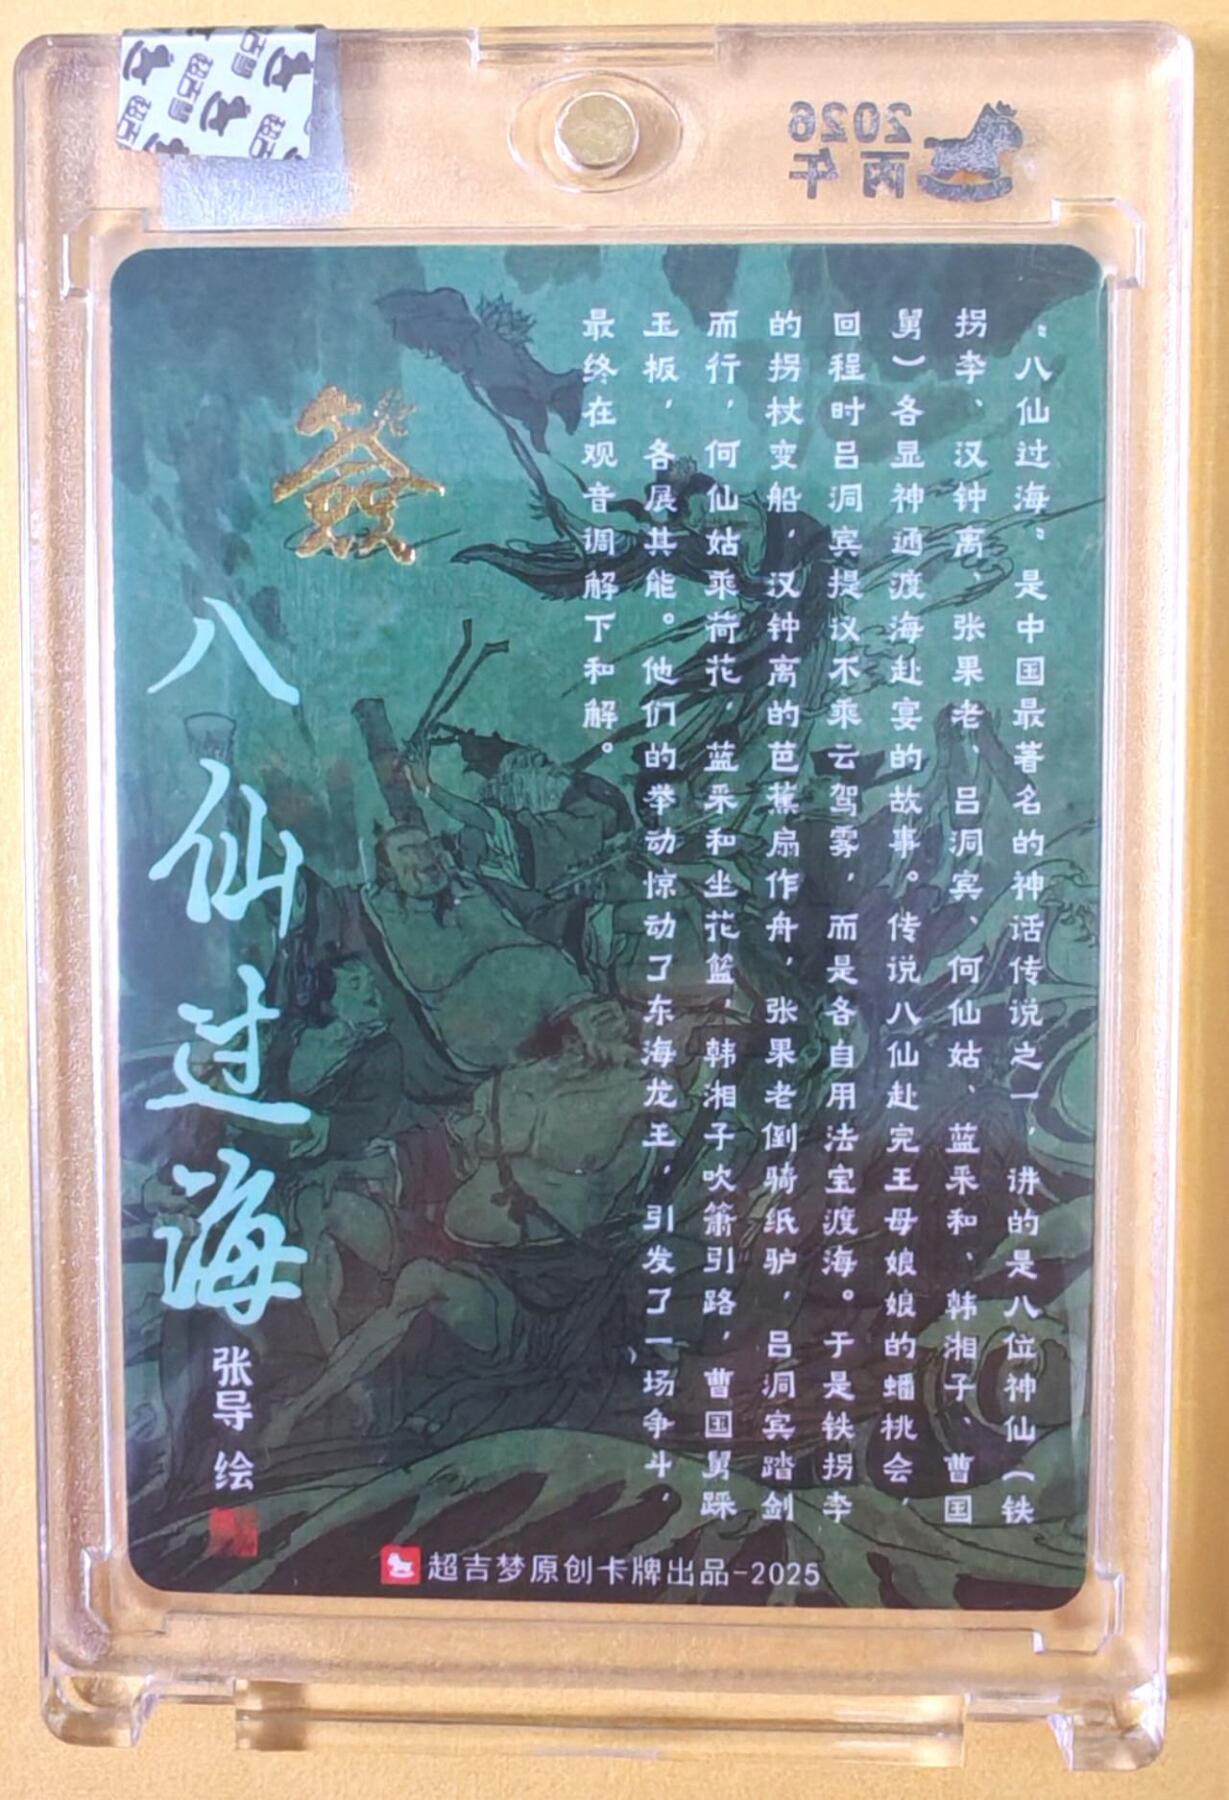 “八仙过海”是中国最著名的神话传说之一，讲的是八位神仙（铁
拐李、汉钟离、张果老、吕洞宾、何仙姑、蓝采和、韩湘子、曹国
舅）各显神通渡海赴宴的故事。传说八仙赴完王母娘娘的蟠桃会，
回程时吕洞宾提议不乘云驾雾，而是各自用法宝渡海。于是铁拐李
的拐杖变船，汉钟离的芭蕉扇作舟，张果老倒骑纸驴，吕洞宾踏剑
而行，何仙姑乘荷花，蓝采和坐花篮，韩湘子吹箫引路，曹国舅踩
玉板，各展其能。他们的举动惊动了东海龙王，引发了一场争斗，
最终在观音调解下和解。
八仙过海
张导 绘
超吉梦原创卡牌出品-2025
2026
丙午